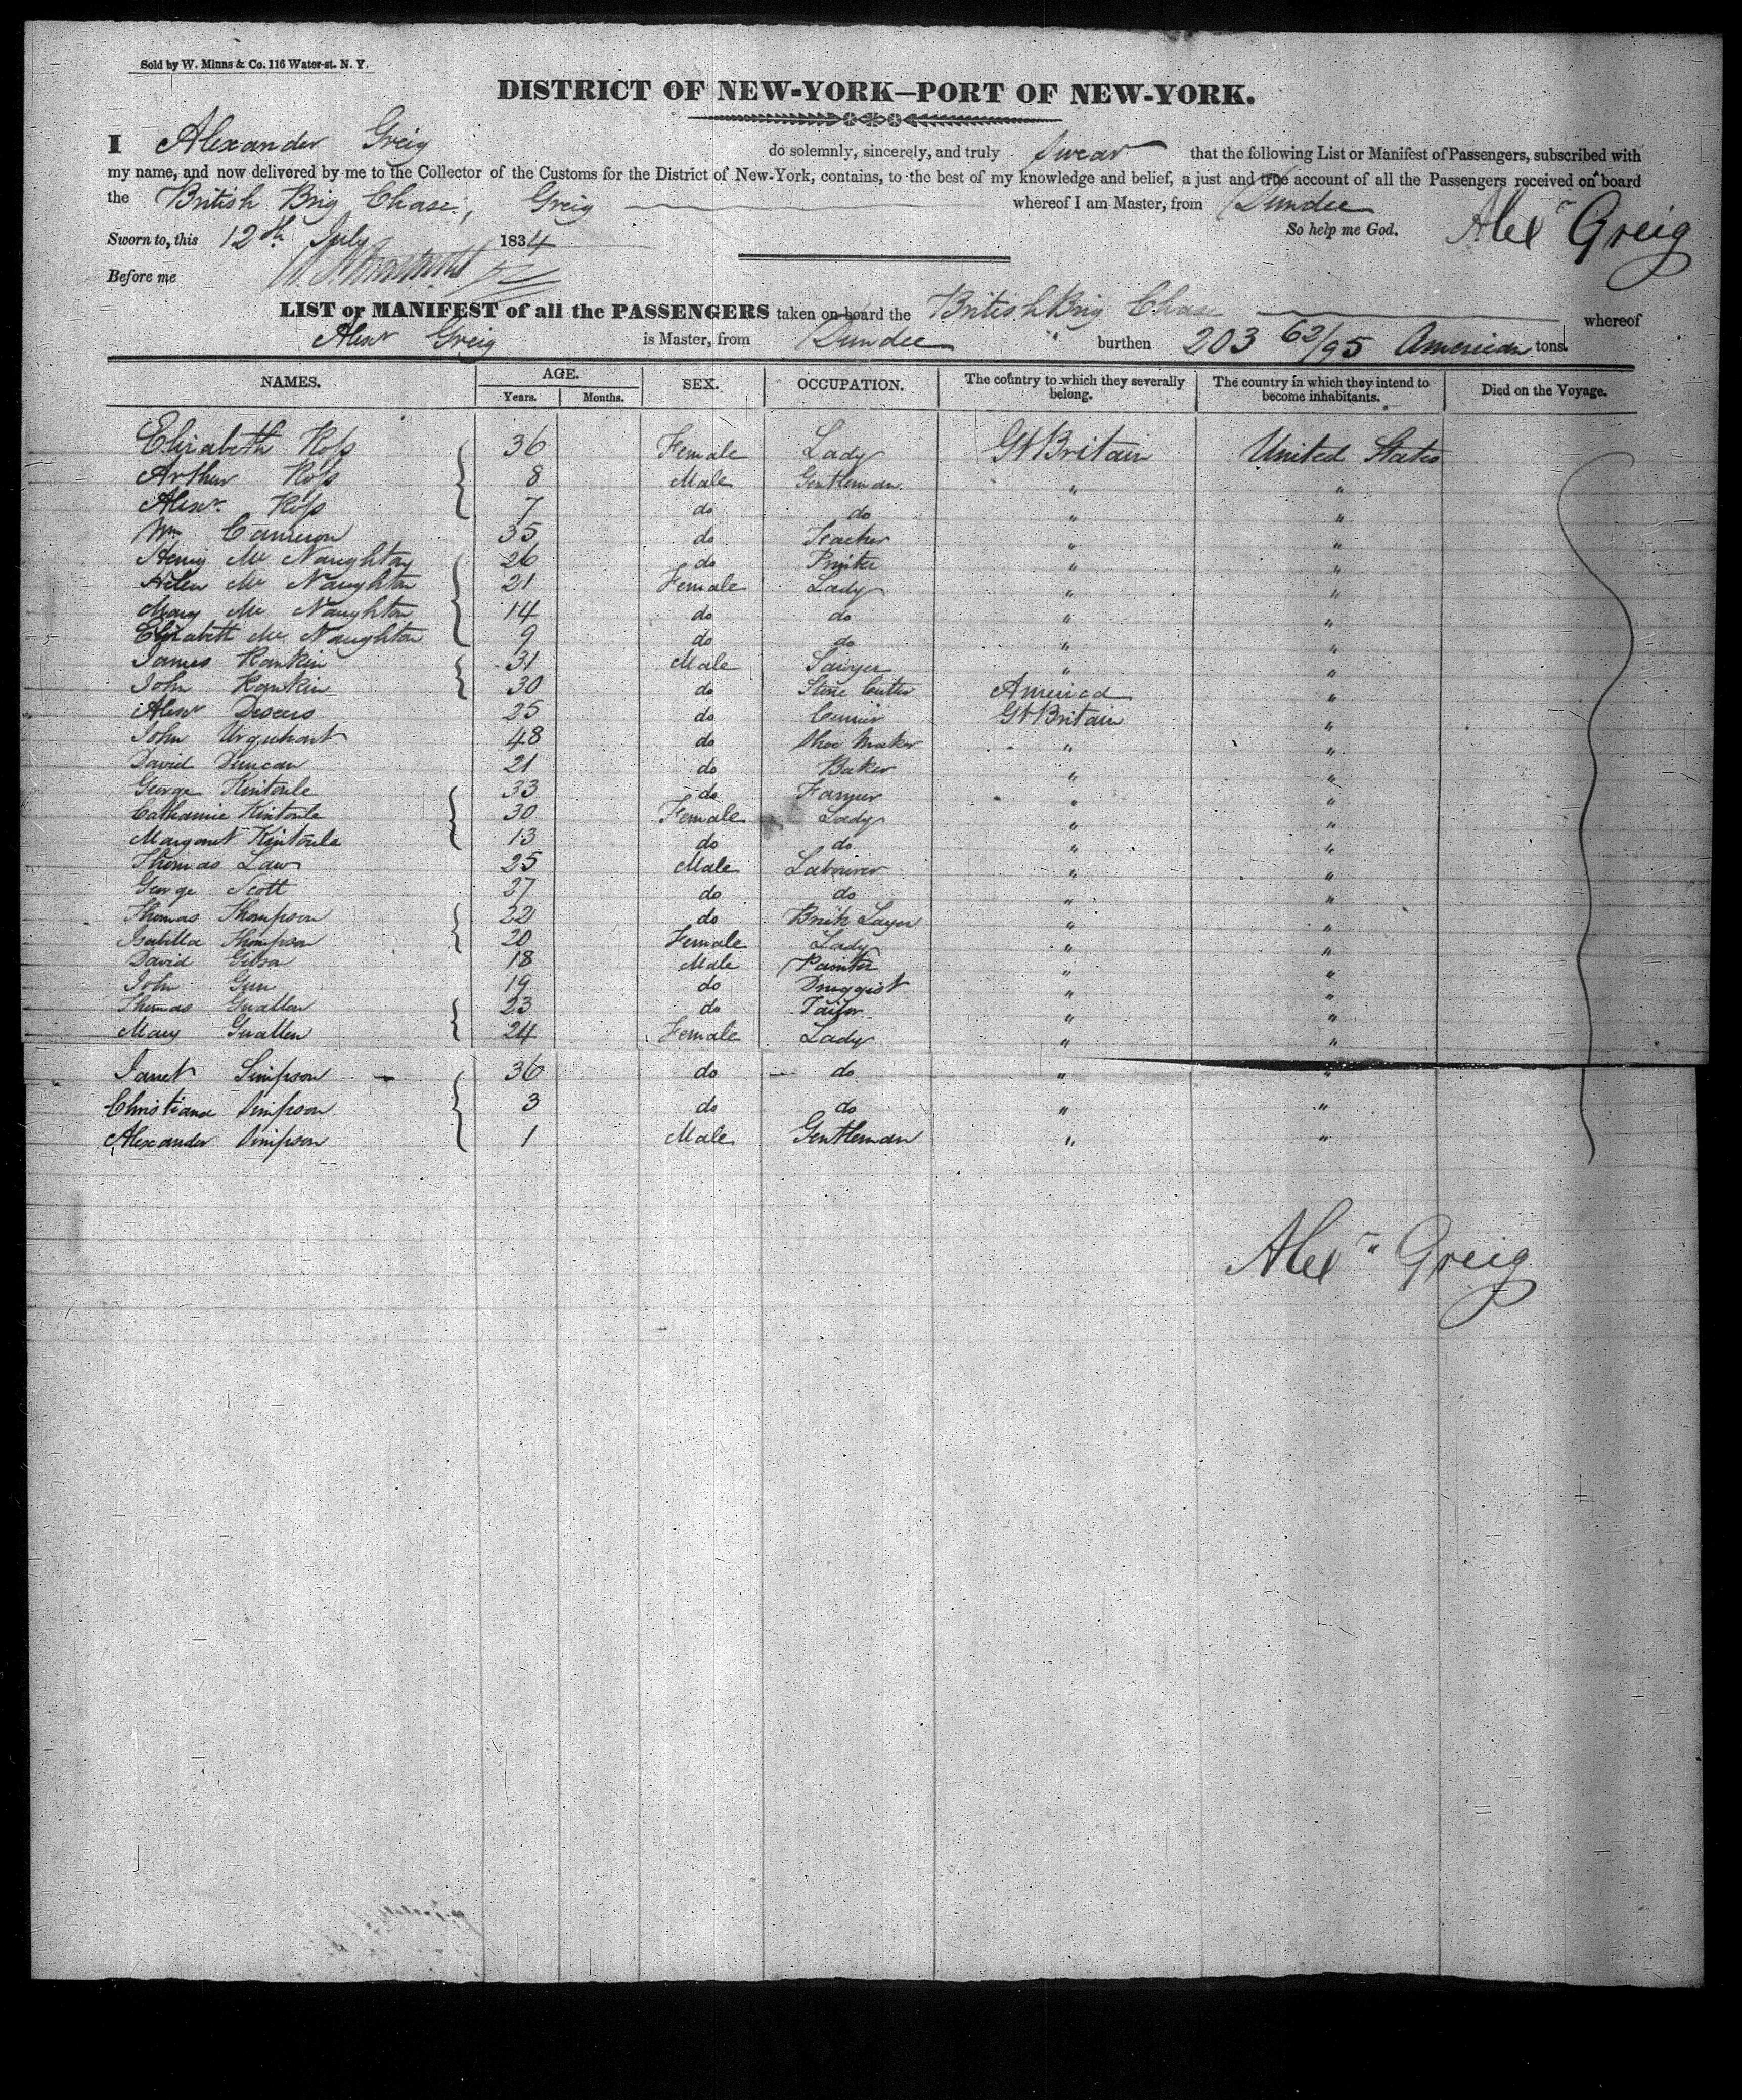 Sold by W. Minns & Co. 116 Water-st. N. Y.
DISTRICT OF NEW-YORK—PORT OF NEW-YORK.
I Alexander Greig do solemnly, sincerely, and truly swear that the following List or Manifest of Passengers, subscribed with
my name, and now delivered by me to the Collector of the Customs for the District of New-York, contains, to the best of my knowledge and belief, a just and true account of all the Passengers received on board
the British Brig Chase, Greig whereof I am Master, from Dundee
Sworn to, this 12th July 1834 So help me God. Alexr Greig
Before me
LIST or MANIFEST of all the PASSENGERS taken on board the British Brig Chase whereof
Alexr Greig is Master, from Dundee " burthen 203 62/95 American tons.
NAMES. AGE. Years. Months. SEX. OCCUPATION. The country to which they severally belong. The country in which they intend to become inhabitants. Died on the Voyage.
Elizabeth Ross 36 Female Lady Gt Britain United States
Arthur Ross 8 Male Gentleman " "
Alexr. Ross 7 do do " "
Wm Cameron 35 do Teacher " "
Henry Mc Naughton 26 do Printer " "
Helen Mc Naughton 21 Female Lady " "
Mary Mc Naughton 14 do do " "
Elizabeth Mc Naughton 9 do do " "
James Rankin 31 Male Sawyer " "
John Rankin 30 do Stone Cutter America "
Alexr 25 do Currier Gt Britain "
John Urquhart 48 do Shoe Maker " "
David Duncan 21 do Baker " "
George Kintoule 33 do Farmer " "
Catharine Kintoule 30 Female Lady " "
Margaret Kintoule 13 do do " "
Thomas Law 25 Male Labourer " "
George Scott 27 do do " "
Thomas Thompson 22 do Brick Layer " "
Isabella Thompson 20 Female Lady " "
David Gibson 18 Male Painter " "
John Gun 19 do Druggist " "
Thomas 23 do Tailor " "
Mary 24 Female Lady " "
Janet Simpson 36 do do " "
Christiana Simpson 3 do do " "
Alexander Simpson 1 Male Gentleman " "
Alexr Greig